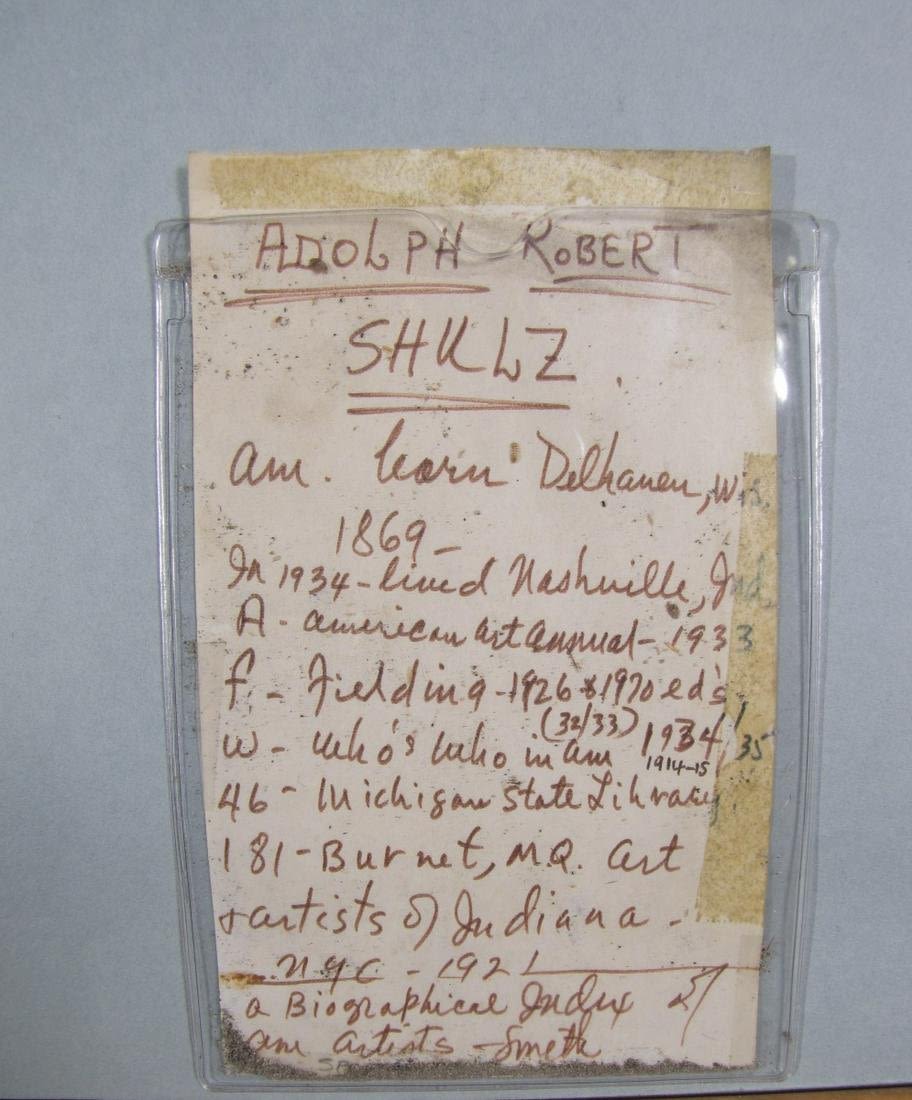 ADOLPH ROBERT
SHULZ.
Am. born Delhaven, Wis.
1869-
In 1934-lived Nashville, Ind.
A - American Art Annual - 1933
F. - Fielding - 1926 & 1970 ed's
(32/33)
W - Who's Who in Am 1934, '35
1914-15
46 - Michigan State Library.
181 - Burnet, M.Q. Art
& artists of Indiana -
NYC - 1921
a Biographical Index of
Am Artists - Smith